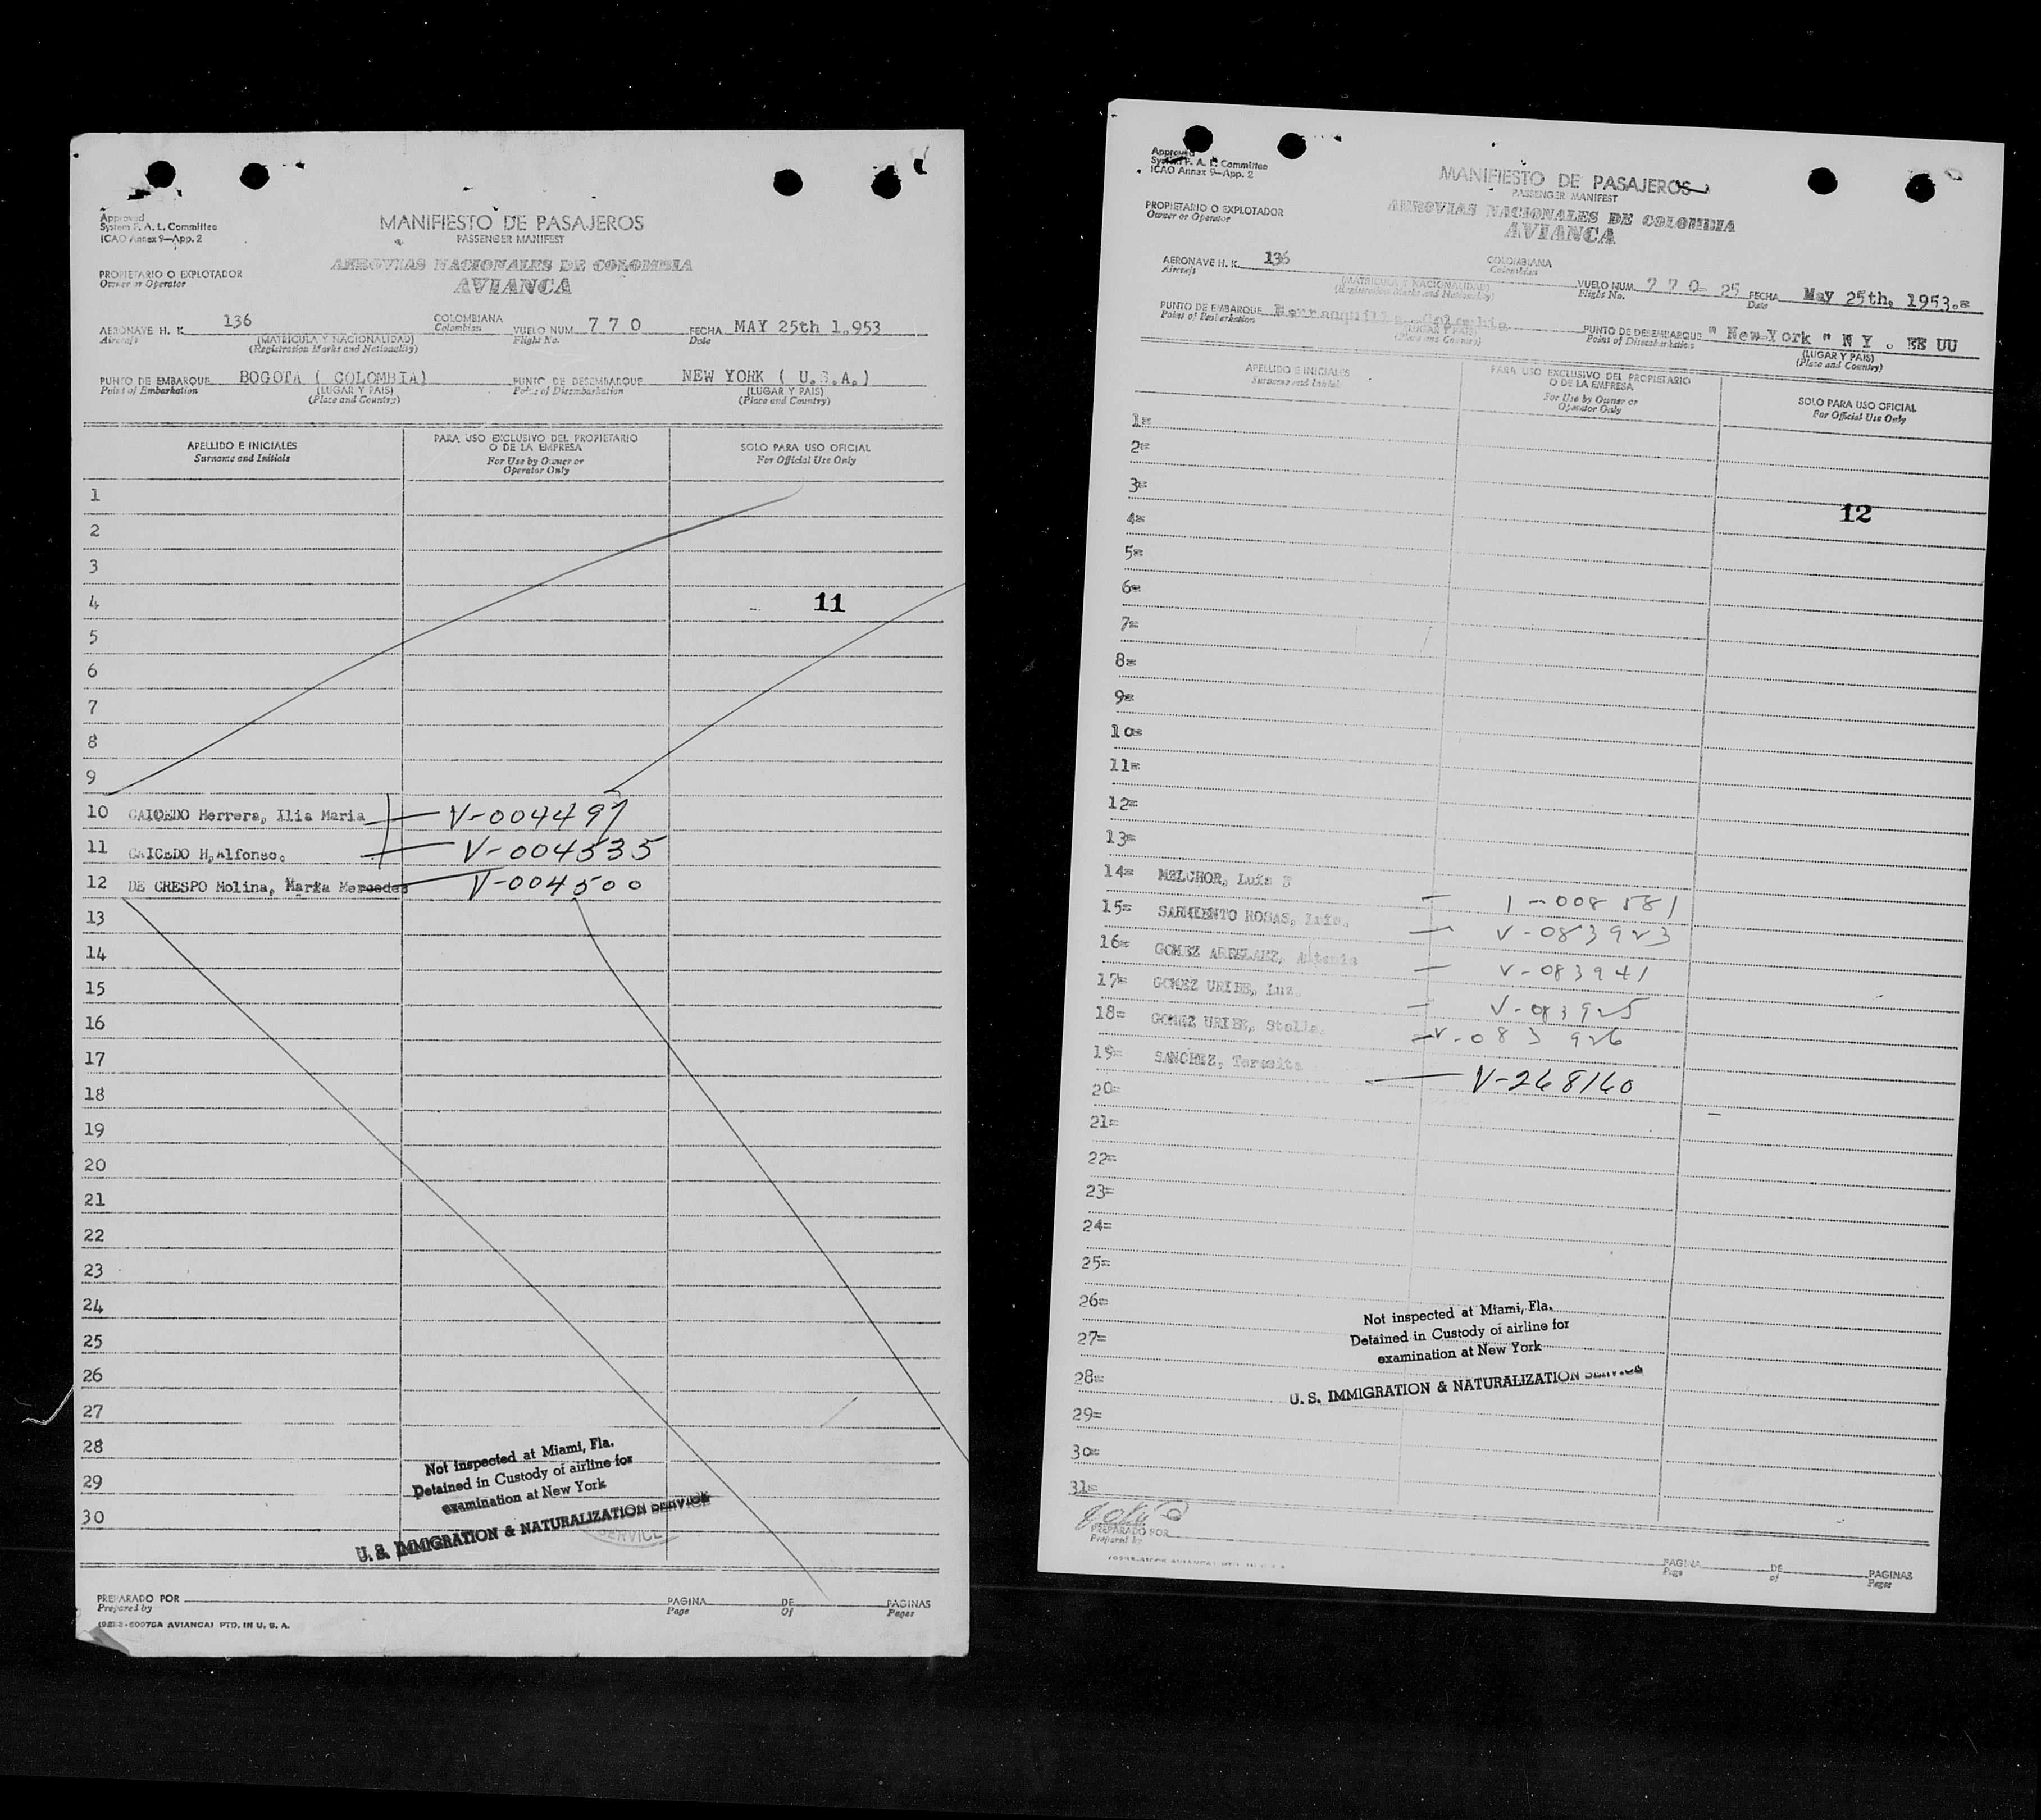 Approved
System F. A. L. Committee
ICAO Annex 9—App. 2
MANIFIESTO DE PASAJEROS
PASSENGER MANIFEST
AEROVIAS NACIONALES DE COLOMBIA
AVIANCA
PROPIETARIO O EXPLOTADOR
Owner or Operator
AERONAVE H. K. 136 COLOMBIANA VUELO NUM. 7 7 0 FECHA MAY 25th 1.953
Aircraft (MATRICULA Y NACIONALIDAD) Colombian Flight No. Date
(Registration Marks and Nationality)
PUNTO DE EMBARQUE BOGOTA ( COLOMBIA) PUNTO DE DESEMBARQUE NEW YORK ( U.S.A.)
Point of Embarkation (LUGAR Y PAIS) Point of Disembarkation (LUGAR Y PAIS)
(Place and Country) (Place and Country)
APELLIDO E INICIALES PARA USO EXCLUSIVO DEL PROPIETARIO SOLO PARA USO OFICIAL
Surname and Initials O DE LA EMPRESA For Official Use Only
For Use by Owner or
Operator Only
1
2
3
4 11
5
6
7
8
9
10 CAICEDO Herrera, Ilia Maria V-004497
11 CAICEDO H,Alfonso. V-004535
12 DE CRESPO Molina, Maria Mercedes V-004500
13
14
15
16
17
18
19
20
21
22
23
24
25
26
27
28
29
30
Not inspected at Miami, Fla.
Detained in Custody of airline for
examination at New York
U. S. IMMIGRATION & NATURALIZATION SERVICE
SERVICE
PREPARADO POR PAGINA DE PAGINAS
Prepared by Page Of Pages
AVIANCA) PTD. IN U. S. A.
Approved
System F. A. L. Committee
ICAO Annex 9—App. 2
MANIFIESTO DE PASAJEROS
PASSENGER MANIFEST
AEROVIAS NACIONALES DE COLOMBIA
AVIANCA
PROPIETARIO O EXPLOTADOR
Owner or Operator
AERONAVE H. K. 136 COLOMBIANA VUELO NUM. 7 7 0- 25 FECHA May 25th, 1953.=
Aircraft (MATRICULA Y NACIONALIDAD) Colombian Flight No. Date
(Registration Marks and Nationality)
PUNTO DE EMBARQUE Barranquilla-Colombia PUNTO DE DESEMBARQUE " New-York " N Y . EE UU
Point of Embarkation (LUGAR Y PAIS) Point of Disembarkation (LUGAR Y PAIS)
(Place and Country) (Place and Country)
APELLIDO E INICIALES PARA USO EXCLUSIVO DEL PROPIETARIO SOLO PARA USO OFICIAL
Surname and Initials O DE LA EMPRESA For Official Use Only
For Use by Owner or
Operator Only
1=
2=
3=
4= 12
5=
6=
7=
8=
9=
10=
11=
12=
13=
14= MELCHOR, Luis - 1-008581
15= SARMIENTO ROSAS, Luis. - V-083923
16= GOMEZ ARBELAEZ, Antonio - V-083941
17= GOMEZ URIBE, Luz. - V-083925
18= GOMEZ URIBE, Stella. - V-083 926
19= SANCHEZ, Teresita - V-268160
20=
21=
22=
23=
24=
25=
26=
27=
28=
29=
30=
31=
Not inspected at Miami, Fla.
Detained in Custody of airline for
examination at New York
U. S. IMMIGRATION & NATURALIZATION SERVICE
PREPARADO POR PAGINA DE PAGINAS
Prepared by Page of Pages